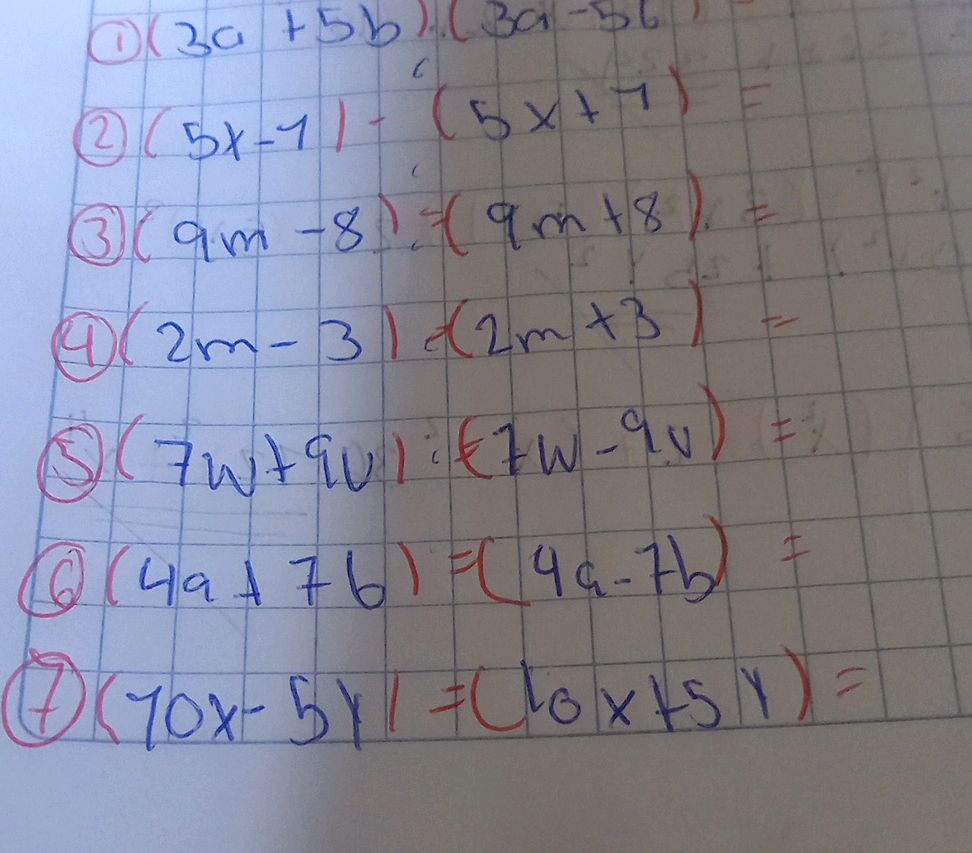 ① (3a + 5b).(3a - 5b) =
② (5x - 1) - (5x + 1) =
③ (9m - 8) = (9m + 8). =
④ (2m - 3) = (2m + 3) =
⑤ (7w + 9v) : (7w - 9v) =
⑥ (4a + 7b) = (4a - 7b) =
⑦ (10x - 5y) = (10x + 5y) =